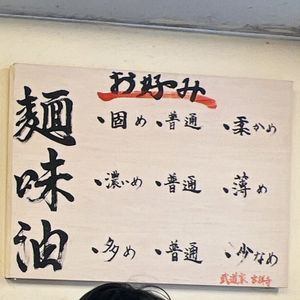 お好み
麺 ・固め ・普通 ・柔かめ
味 ・濃いめ ・普通 ・薄め
油 ・多め ・普通 ・少なめ
武道家 吉祥寺